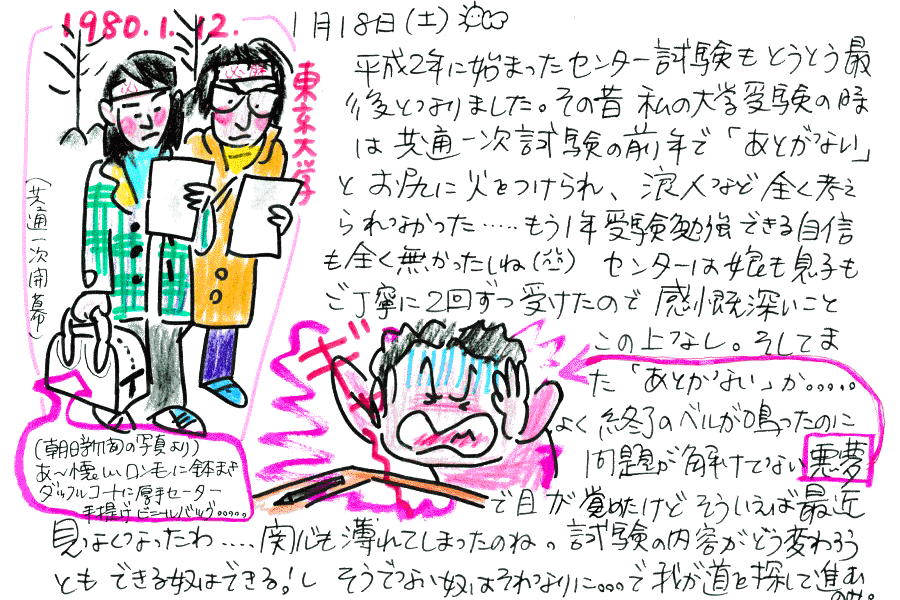 1980.1.12.
東京大学
(共通一次開幕)
(朝日新聞の写真より)
あ〜懐しいロン毛に鉢まき
ダッフルコートに厚手セーター
手提げビニールバッグ.....
1月18日(土)
平成2年に始まったセンター試験もとうとう最
後となりました。その昔 私の大学受験の時
は 共通一次試験の前年で「あとがない」
と お尻に火をつけられ、浪人など全く考え
られなかった.....もう1年受験勉強できる自信
も全く無かったしね(^^) センターは娘も息子も
ご丁寧に2回ずつ受けたので 感慨深いこと
この上なし。そしてま
た「あとがない」か.....
よく 終了のベルが鳴ったのに
問題が解けてない 悪夢
で目が覚めたけど そういえば最近
見なくなったわ....、関心も薄れてしまったのね。試験の内容がどう変わろう
とも できる奴はできる!し そうでない奴はそれなりに...で我が道を探して進む
のみ。
ギャー
必勝